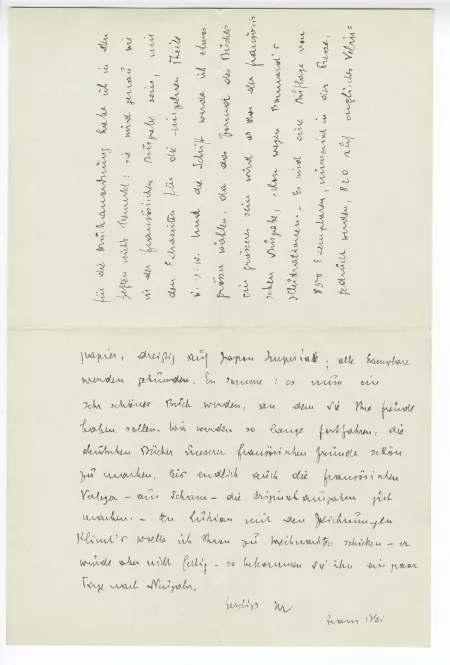 für die Druckanordnung habe ich in den
heften nicht vermerkt: sie wird genau wie
in der französischen Ausgabe sein, mit
den Extraseiten für die einzelnen Theile
u. s. w. Und die Schrift werde ich etwas
grösser wählen, da das Format des Buches
ein grösseres sein wird als das der französi-
schen Ausgabe, schon wegen Bonnard's
Illustrationen. - Es wird eine Auflage von
850 Exemplaren, numerirt in der Presse,
gedruckt werden, 820 auf englisches Velin=
papier, dreissig auf Japan Imperial; alle Exemplare
werden gebunden. En somme: es muss ein
sehr schönes Buch werden, an dem Sie Ihre freude
haben sollen. Wir werden so lange fortfahren, die
deutschen Bücher unserer französischen freunde schön
zu machen, bis endlich auch die französischen
Verleger - aus Scham - die Originalausgaben gut
machen. - Den Lukian mit den Zeichnungen
Klimt's wollte ich Ihnen zu Weihnachten schicken - er
wurde aber nicht fertig - so bekommen Sie ihn ein paar
Tage nach Neujahr.
Ihr
Franz Blei